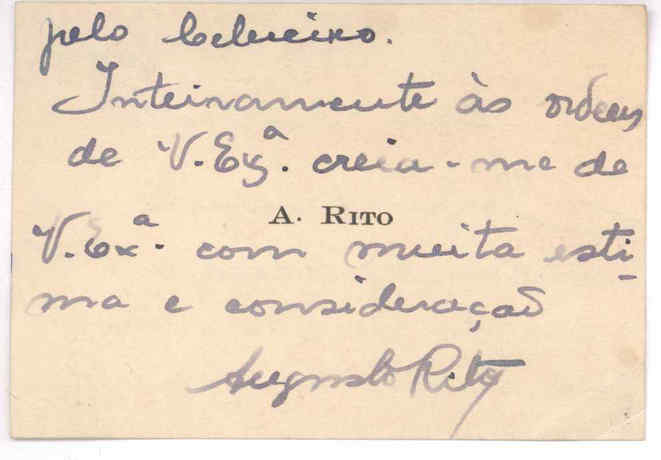 pelo
Inteiramente às ordens
de V. Exª. creia-me de
A. RITO
V. Exª. com muita esti-
ma e consideração
Augusto Rito